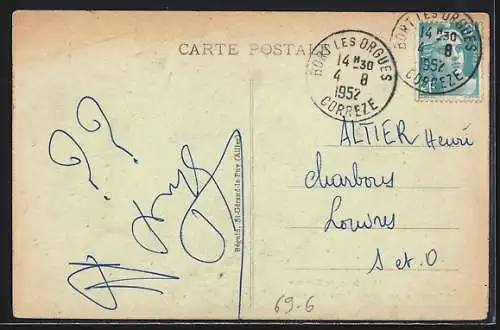 CARTE POSTALE
BORT LES ORGUES
14 H 30
4 8
1952
CORREZE
BORT LES ORGUES
14 H 30
4 8
1952
CORREZE
??
ALTIER Henri
Charbons
Louvres
S et O
Béguin, St-Gérand-le-Puy (Allier)
69-6